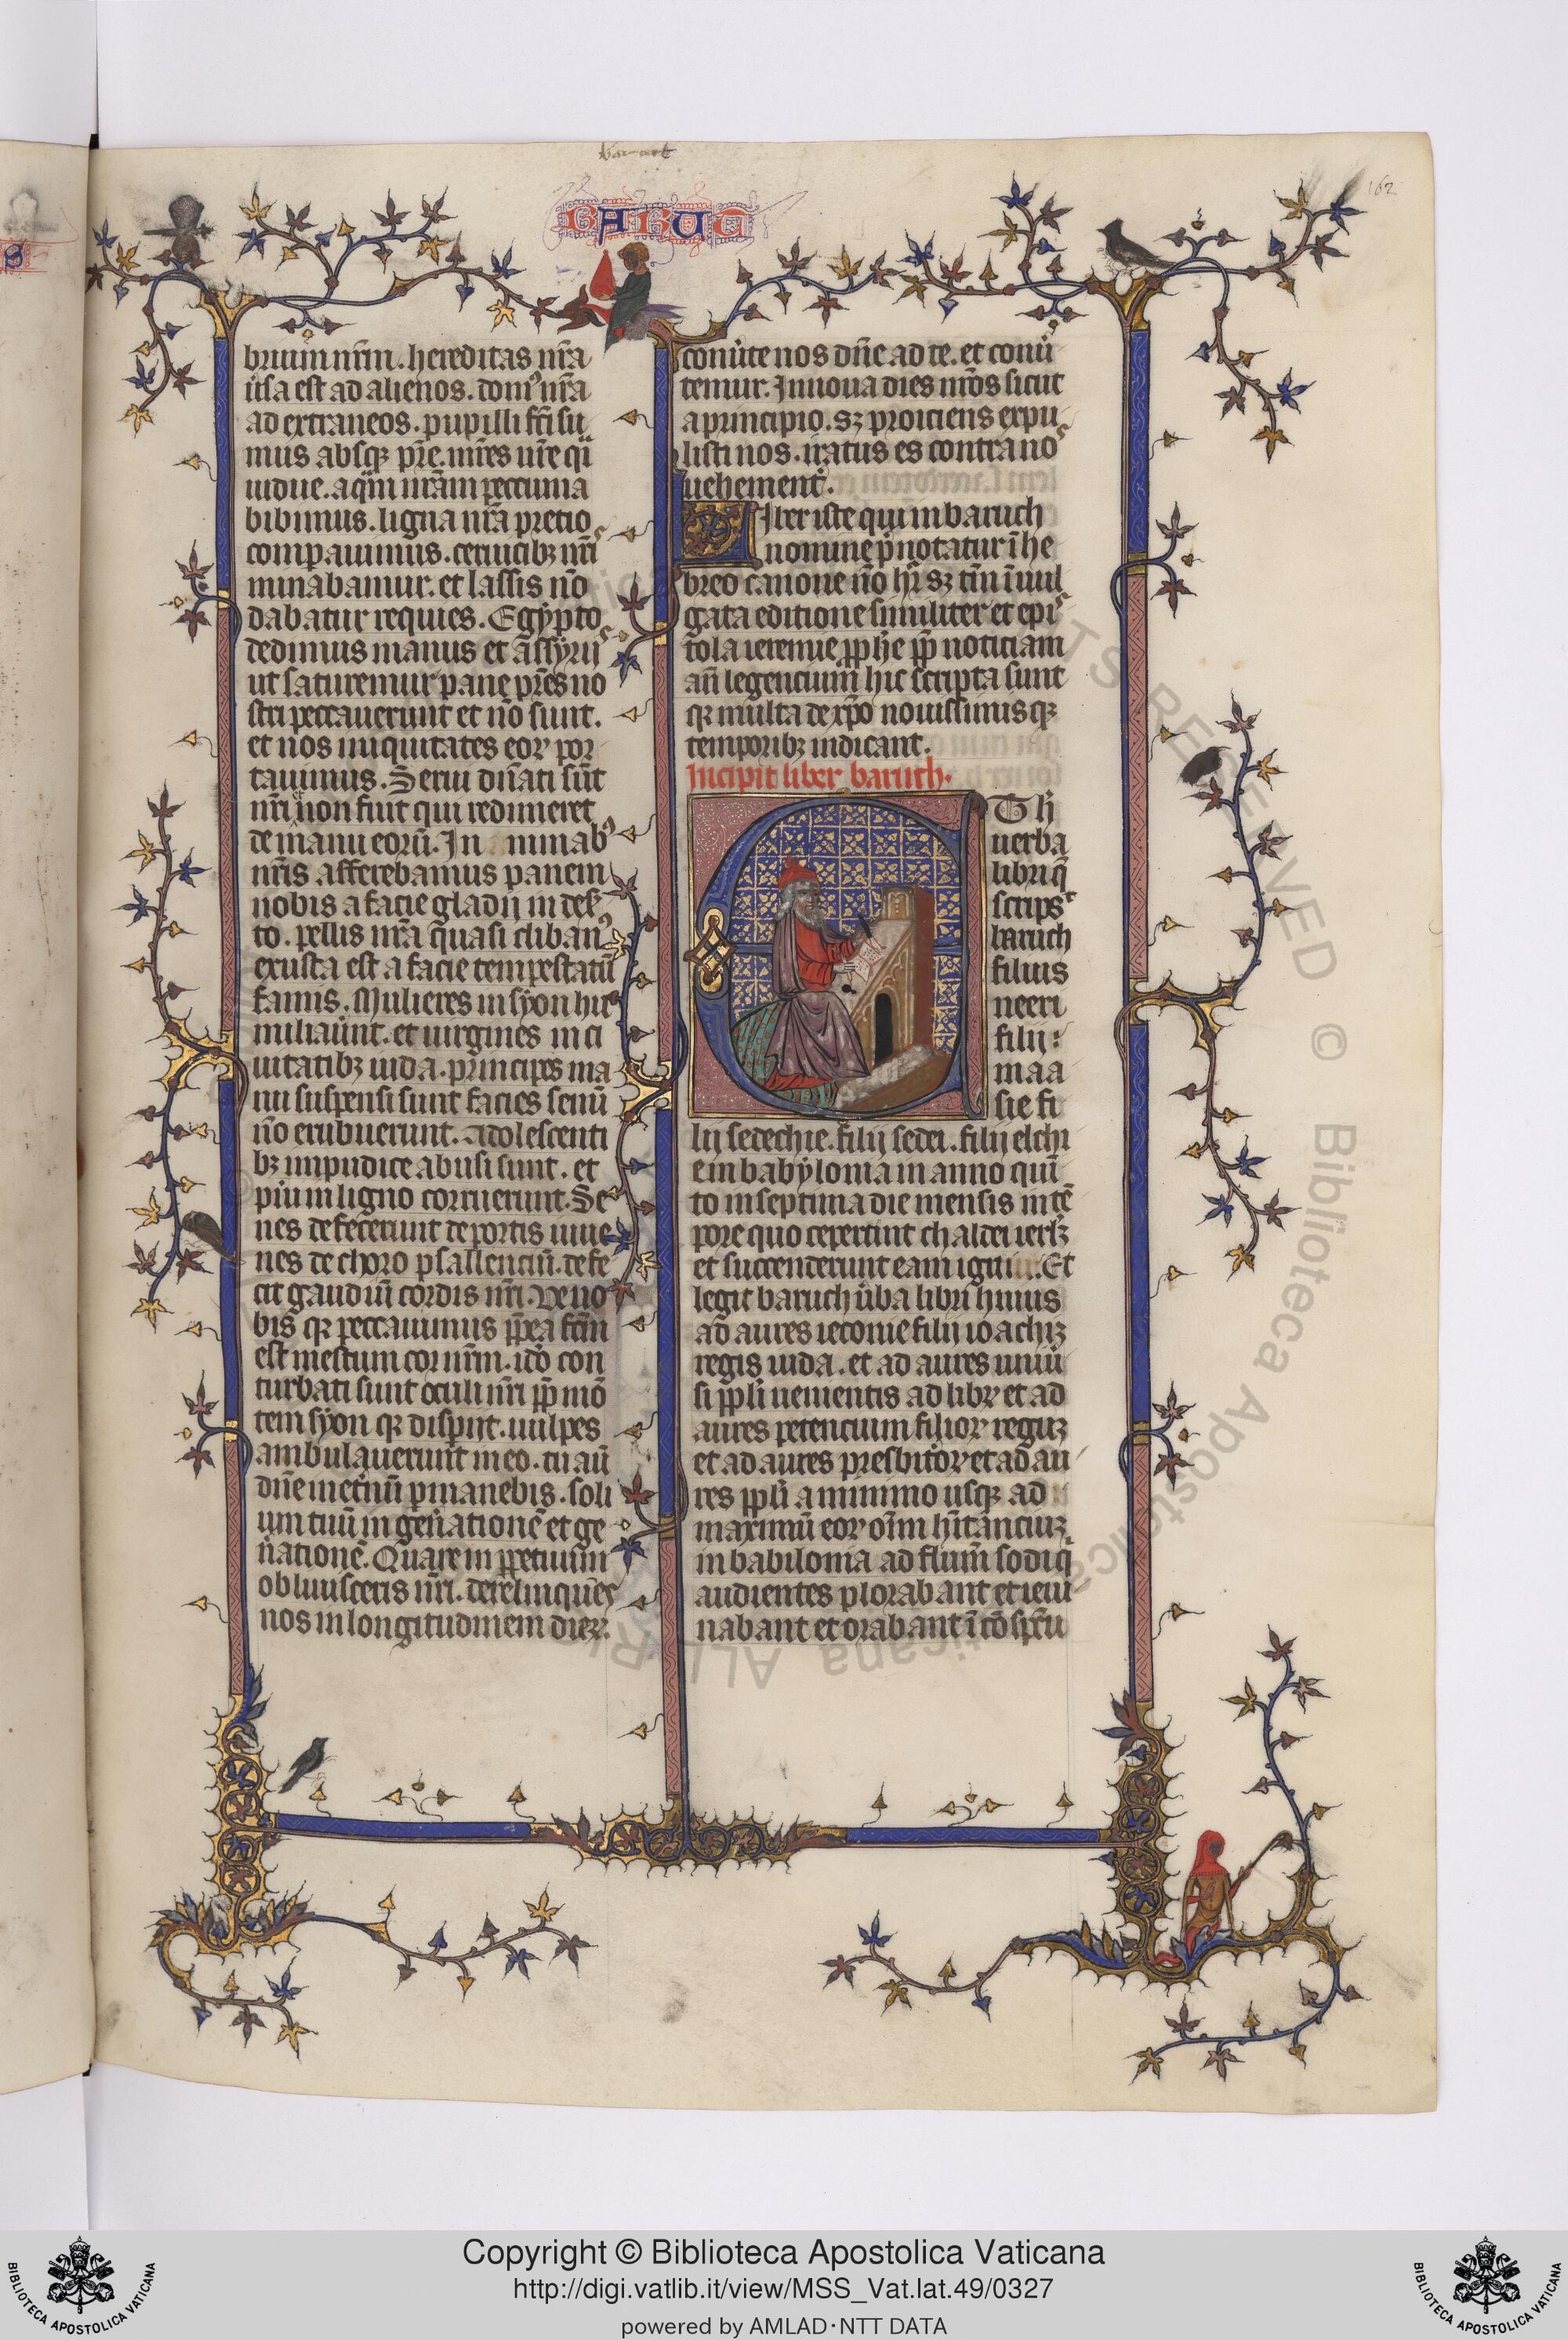 baruch
BARUC
162
brium nr̄m. hereditas nr̄a
ūsa est ad alienos. domꝰ nr̄a
ad extraneos. pupilli fc̄i su
mus absqꝫ pr̄e. mr̄es nr̄e q̄i
uidue. aq̄m nr̄am peccunia
bibimus. ligna nr̄a precio
comparauimus. ceruicibꝫ nr̄is
minabamur. et lassis nō
dabatur requies. Egypto
dedimus manus et assyriis
ut saturemur pane pr̄es no
stri peccauerunt et nō sunt.
et nos iniquitates eoꝝ por
tauimus. Serui dn̄ati sūt
nr̄i et non fuit qui redimeret
de manu eorū. In minabꝰ
nr̄is afferebamus panem
nobis a facie gladij in deẜ
to. pellis nr̄a quasi clibanꝰ
exusta est a facie tempestatū
famis. Mulieres in syon hu
miliauer̄nt. et uirgines in ci
uitatibꝫ iuda. principes ma
nu suspensi sunt facies senū
nō erubuerunt. Adolescenti
bꝫ impudice abusi sunt. et
piu in ligno corruerunt. Se
nes defecerunt de portis iuue
nes de choro psallenciū. defe
cit gaudiū cordis nr̄i. Ve no
bis qꝛ peccauimus pp̄ea fc̄m
est mestum cor nr̄m. idō con
turbati sunt oculi nr̄i pp̄ mō
tem syon qꝛ disp̄iit. uulpes
ambulauerunt in eo. tu aū
dn̄e inet̄nū ꝑmanebis. soli
um tuū in gen̄atione et ge
n̄atione. Quare in ꝑpetuum
obliuisceris nr̄i. derelinques
nos in longitudinem dieꝝ.
conūte nos dn̄e ad te. et conū
temur. Innoua dies nr̄os sicut
a principio. sꝫ proiciens expu
listi nos. iratus es contra nos
uehement̄.
Liber iste qui in baruch
nomine p̄notatur ī he
breo canone nō hr̄. sꝫ tm̄ ī uul
gata editione similiter et epis
tola ieremie ꝓphē pp̄ noticiam
aū legencium hic scripta sunt
qꝛ multa de xp̄o nouissimisqꝫ
temporibꝫ indicant.
Incipit liber baruch.
Et hͥ
uerba
libri q̄
scripsᵗ
baruch
filius
neeri
filij
maa
sie fi
lij sedechie. filij sedei. filij elchi
e in babylonia in anno quī
to in septima die mensis in tē
pore quo ceperunt chaldei ierlꝫ
et succenderunt eam igni. Et
legit baruch ūba libri huius
ad aures ieconie filij ioachiꝫ
regis iuda. et ad aures uniū
si ppl̄i uenientis ad libꝝ et ad
aures potencium filioꝝ reguꝫ
et ad aures presbit̄oꝝ et ad au
res ppl̄i a minimo usqꝫ ad
maximū eoꝝ oīm hītanciuꝫ
in babilonia ad flum̄ sodi q̄
audientes plorabant et ieiu
nabant et orabant ī cōspc̄u
Copyright © Biblioteca Apostolica Vaticana
http://digi.vatlib.it/view/MSS_Vat.lat.49/0327
powered by AMLAD·NTT DATA
BIBLIOTECA APOSTOLICA VATICANA
BIBLIOTECA APOSTOLICA VATICANA